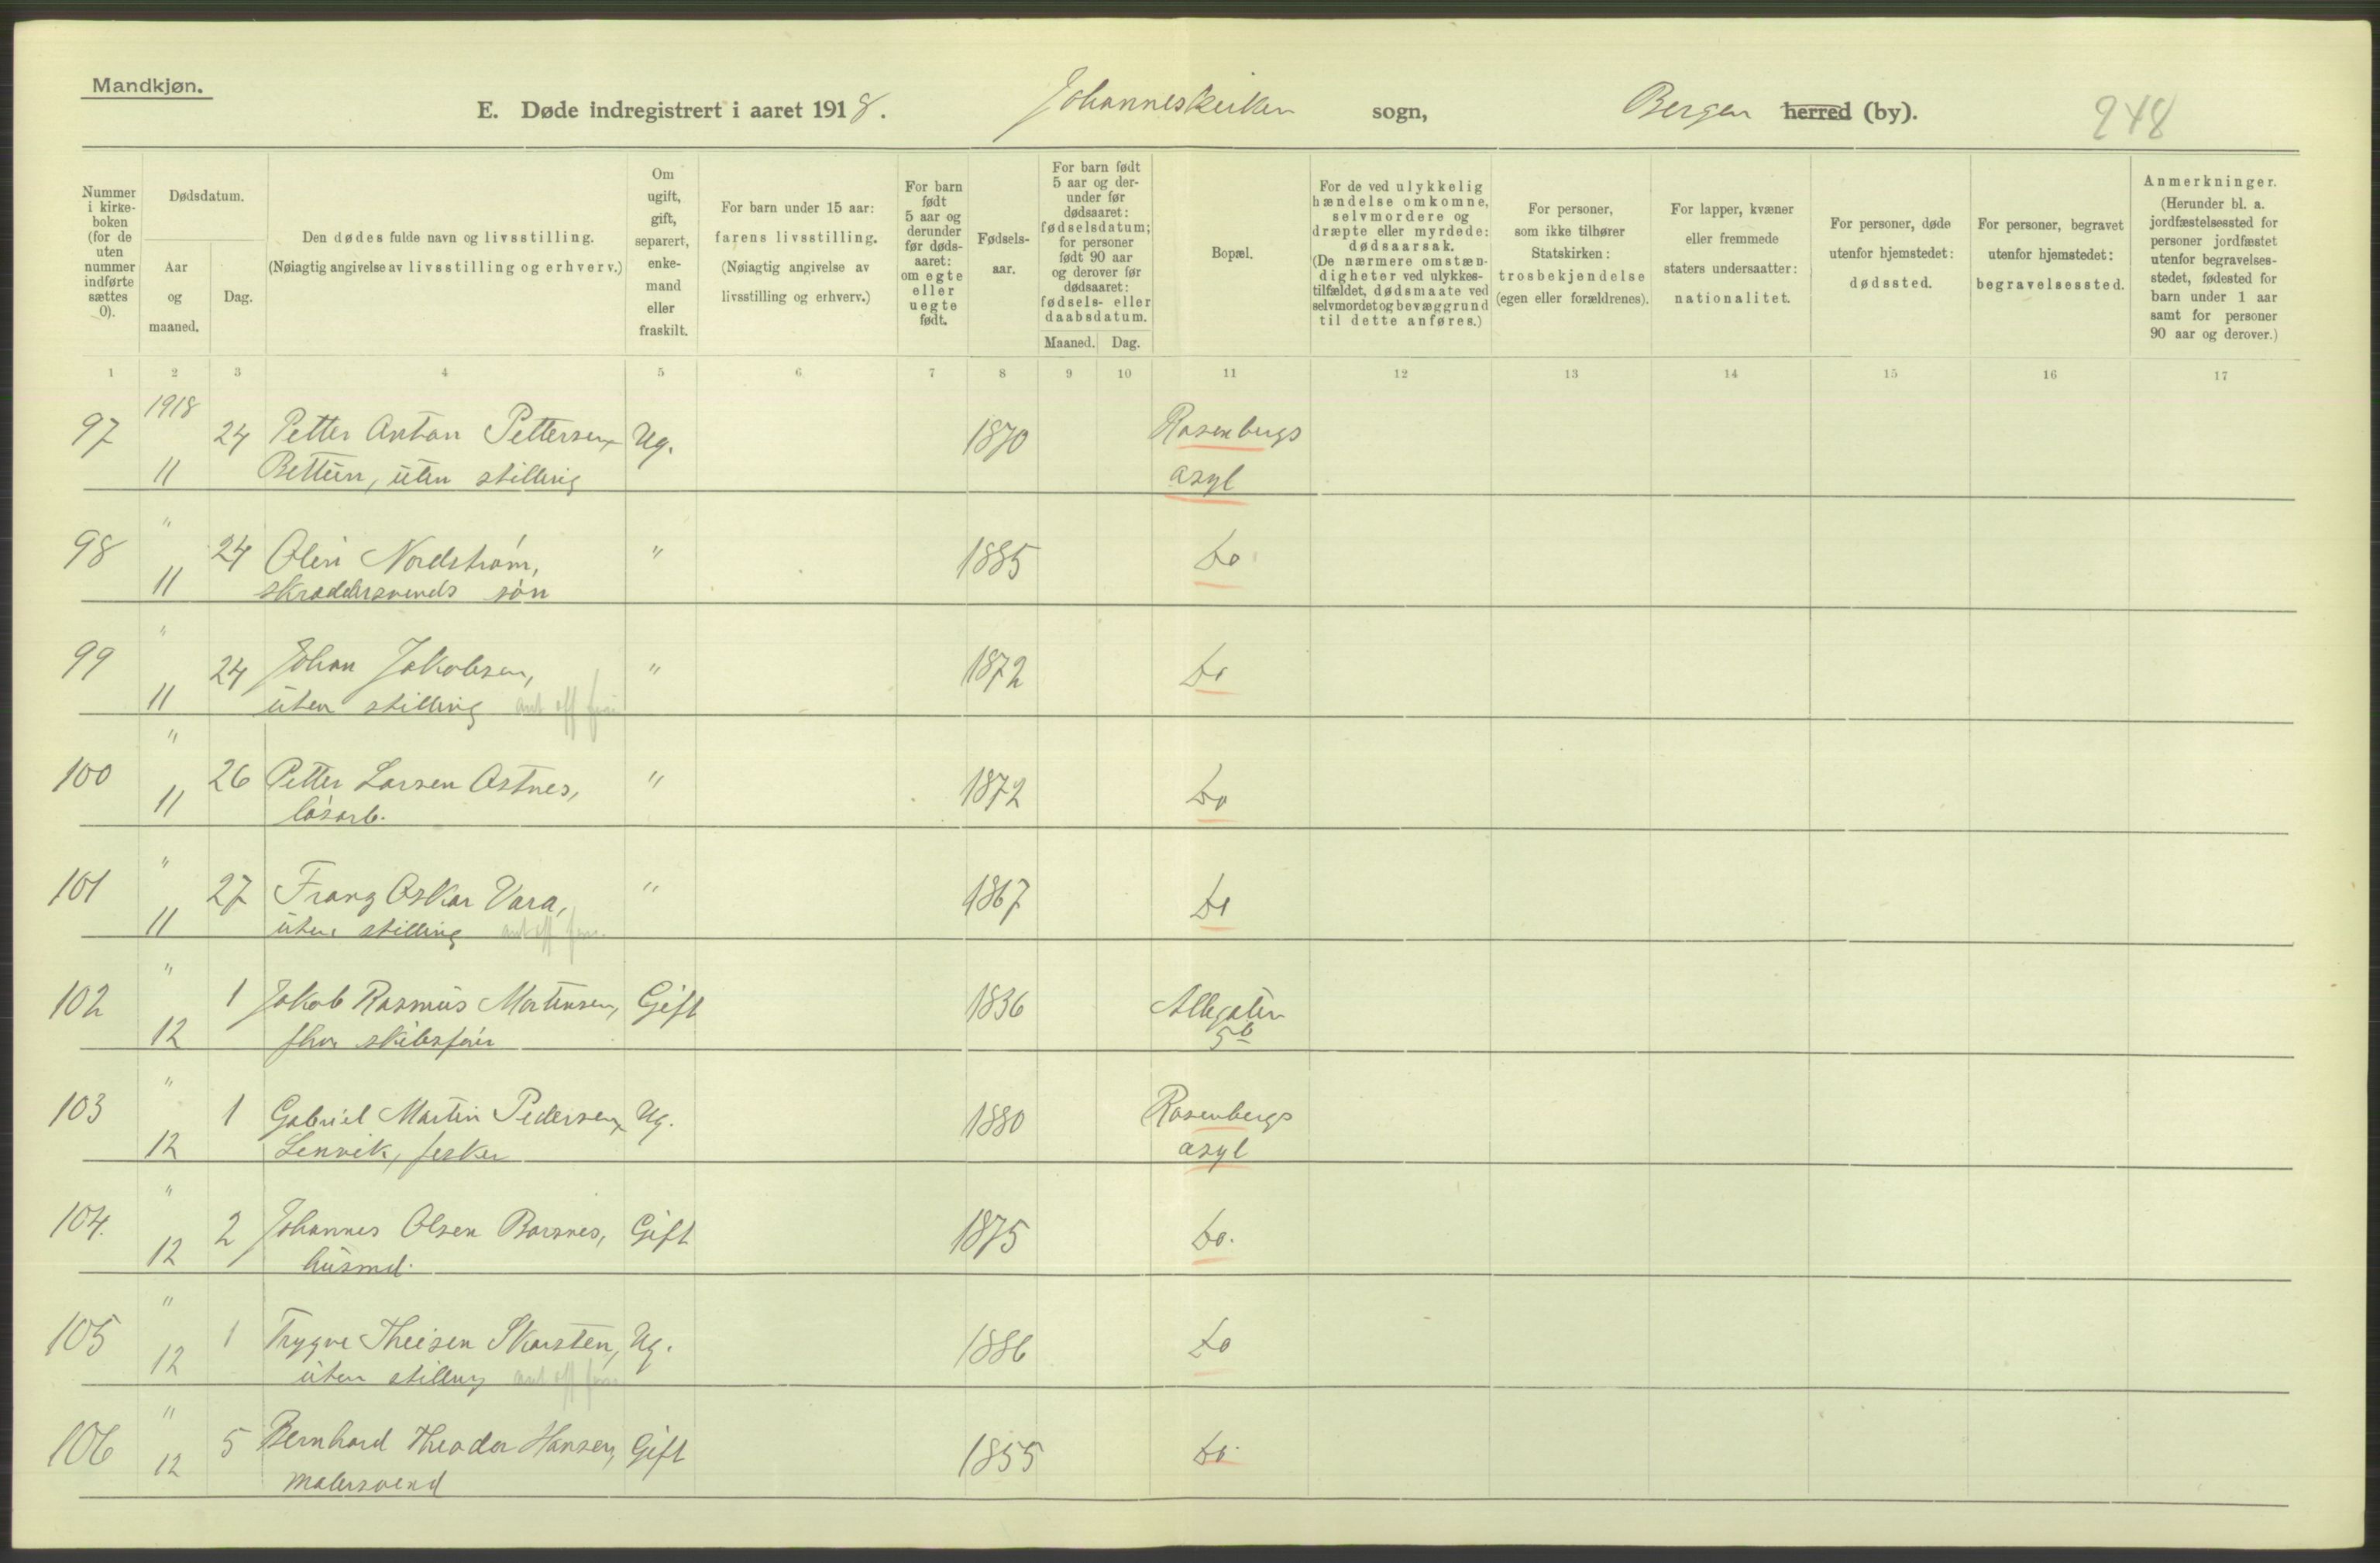 Mandkjøn.
E. Døde indregistrert i aaret 1918. Johanneskirken sogn, Bergen herred (by). 248
Nummer i kirkeboken (for de uten nummer indførte sættes 0).
Dødsdatum.
Aar og maaned.
Dag.
Den dødes fulde navn og livsstilling.
(Nøiagtig angivelse av livsstilling og erhverv.)
Om ugift, gift, separert, enkemand eller fraskilt.
For barn under 15 aar: farens livsstilling.
(Nøiagtig angivelse av livsstilling og erhverv.)
For barn født 5 aar og derunder før dødsaaret: om egte eller uegte født.
Fødselsaar.
For barn født 5 aar og derunder før dødsaaret: fødselsdatum; for personer født 90 aar og derover før dødsaaret: fødsels- eller daabsdatum.
Maaned. Dag.
Bopæl.
For de ved ulykkelig hændelse omkomne, selvmordere og dræpte eller myrdede: dødsaarsak.
(De nærmere omstændigheter ved ulykkestilfældet, dødsmaate ved selvmordet og bevæggrund til dette anføres.)
For personer, som ikke tilhører Statskirken: trosbekjendelse (egen eller forældrenes).
For lapper, kvæner eller fremmede staters undersaatter: nationalitet.
For personer, døde utenfor hjemstedet: dødssted.
For personer, begravet utenfor hjemstedet: begravelsessted.
Anmerkninger.
(Herunder bl. a. jordfæstelsessted for personer jordfæstet utenfor begravelsesstedet, fødested for barn under 1 aar samt for personer 90 aar og derover.)
1 2 3 4 5 6 7 8 9 10 11 12 13 14 15 16 17
1918
97 24 Petter Antan Pettersen Ug. 1870 Rosenbergs
11 uten stilling asyl
"
98 24 Olen Nordstrøm, " 1885 Do
11 skræddersvends søn
"
99 24 Johan Jakobsen, " 1872 Do
11 uten stilling
"
100 26 Petter Larsen Astnes, " 1872 Do
11 løsarb.
"
101 27 Franz Oskar Vara, " 1867 Do
11 uten stilling
"
102 1 Jakob Rasmus Mortensen, Gift 1836 Allegaten
12 fhv. skibsfører 5b
"
103 1 Gabriel Martin Pedersen Ug. 1880 Rosenbergs
12 Lenvik, fisker asyl
"
104. 2 Johannes Olsen Barsnes, Gift 1875 Do.
12 husmd.
"
105 1 Trygve Theisen Skarsten, Ug. 1886 Do
12 uten stilling
"
106 5 Bernhard Theodor Hansen, Gift 1855 Do.
12 malersvend